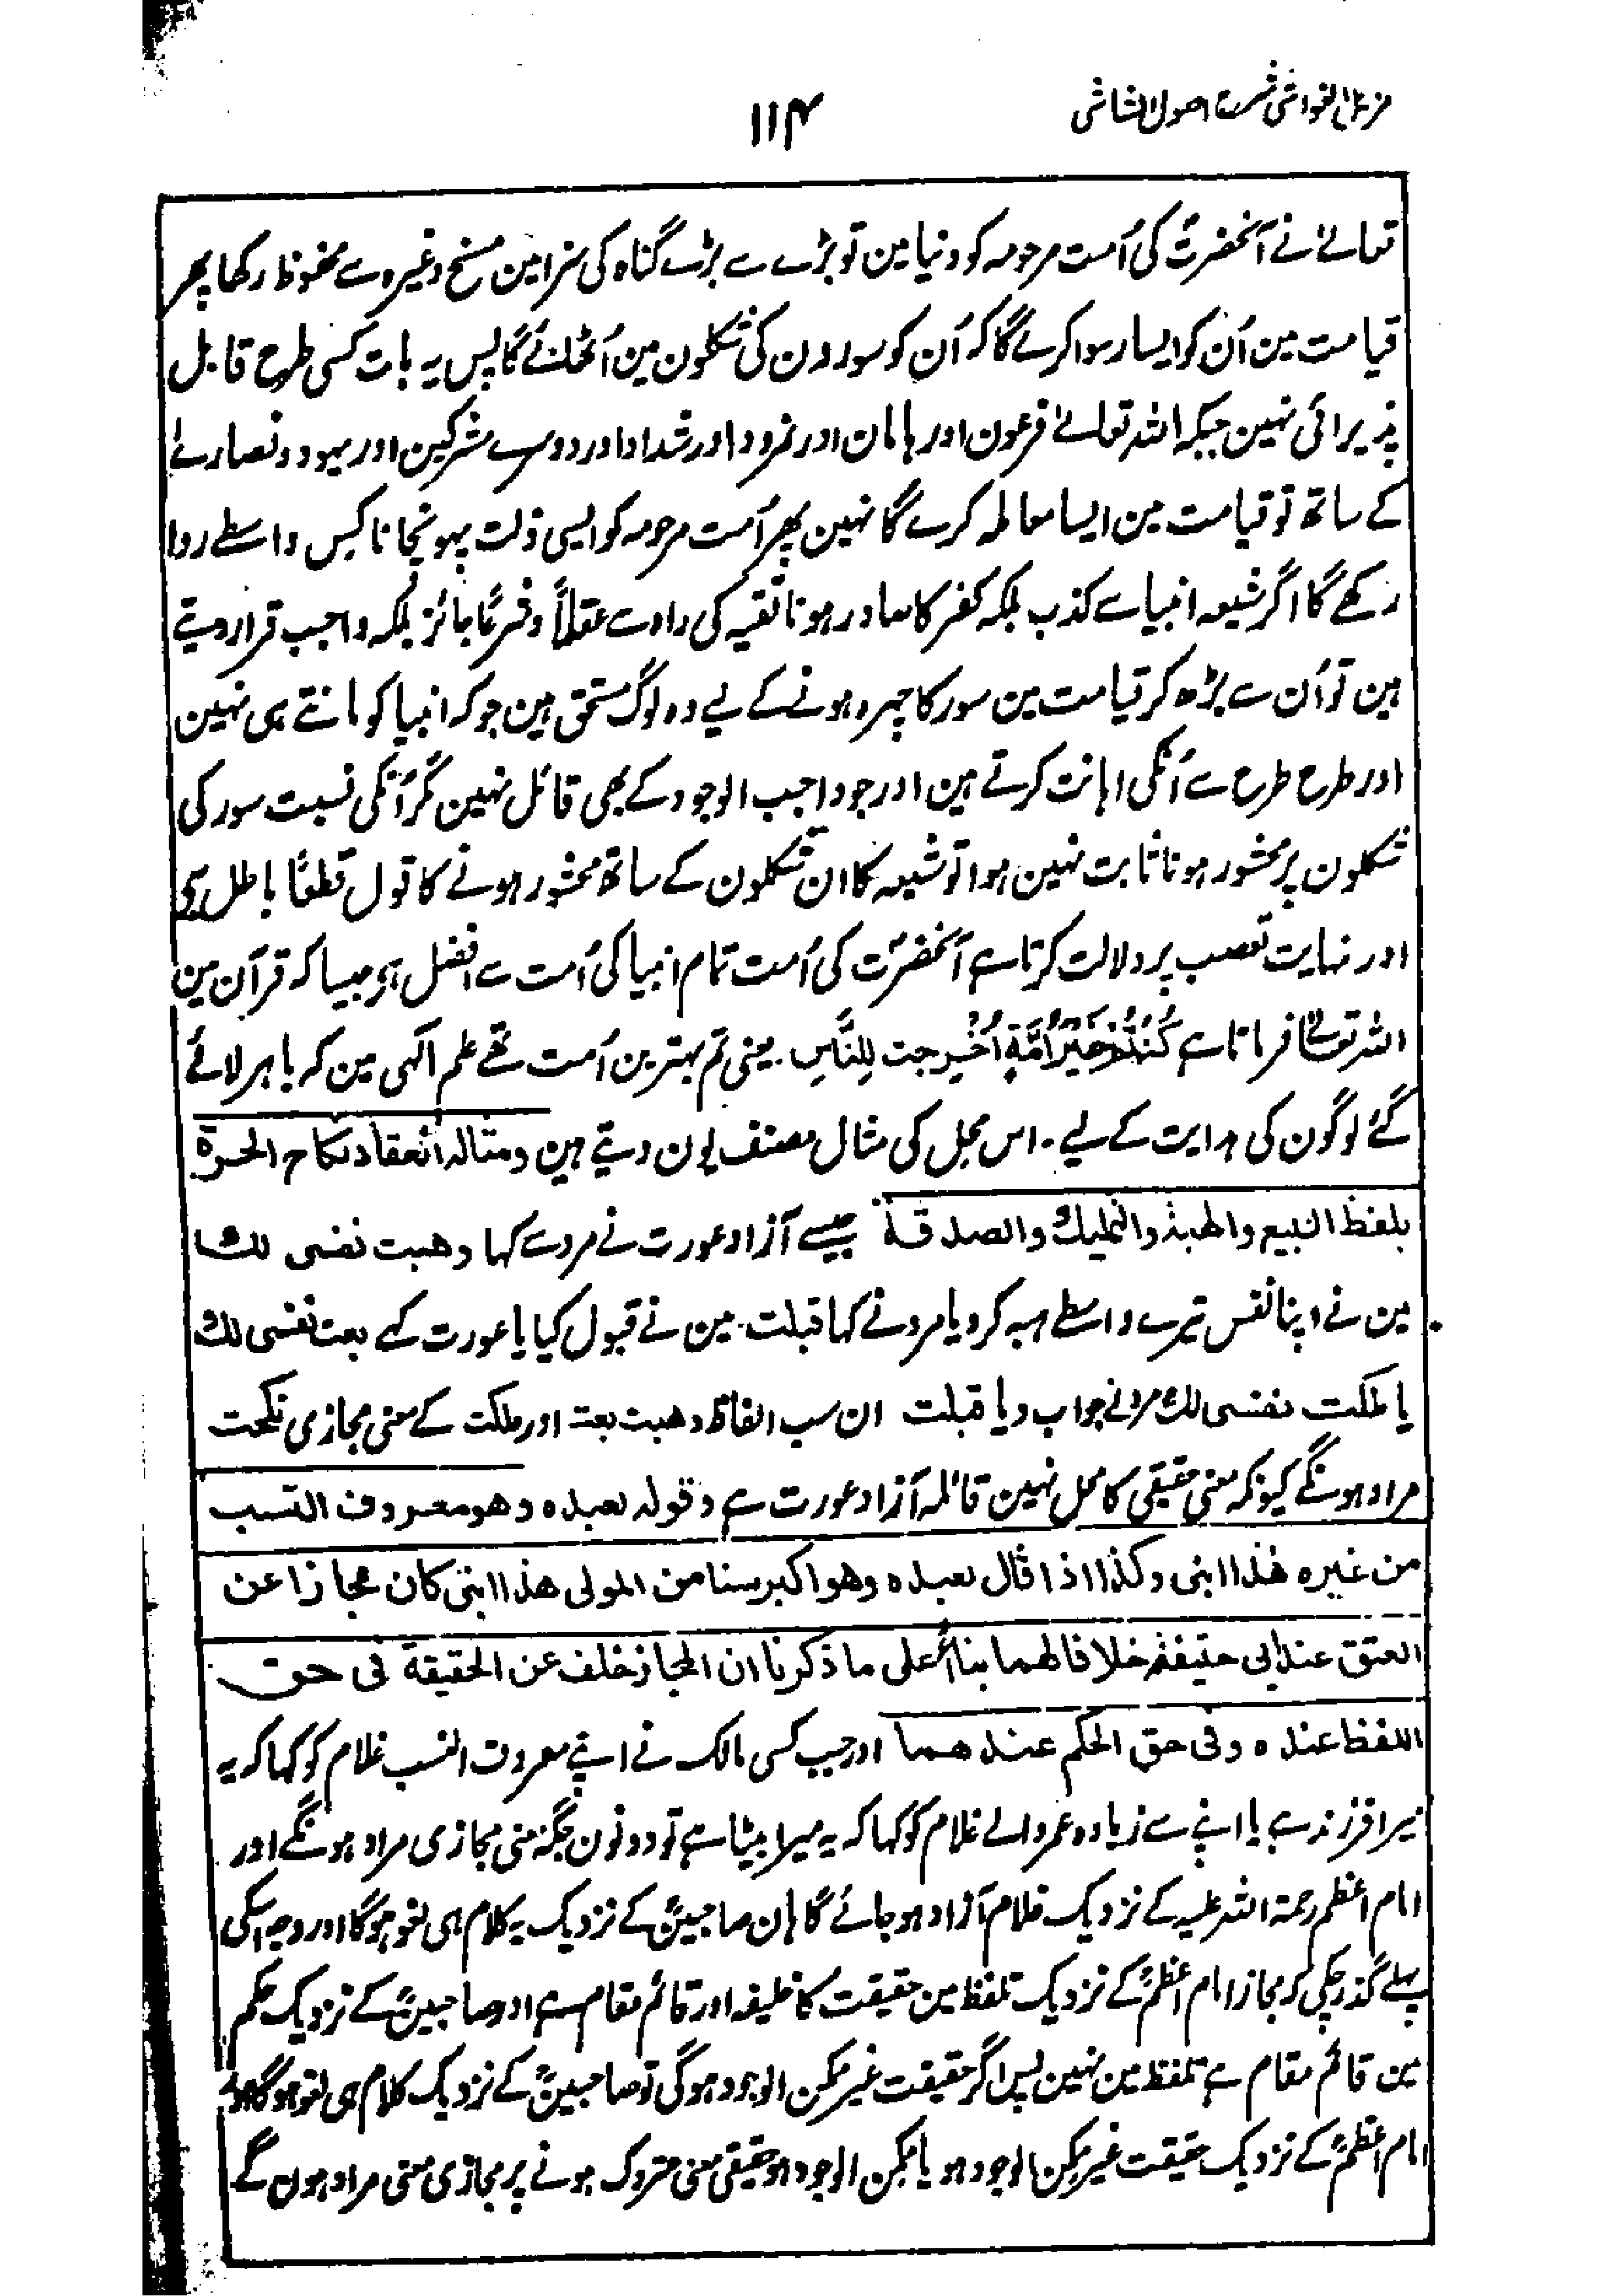 مزیل الغواشی شرح اصول الشاشی
۱۱۴
تعالےٰ نے آنحضرتؐ کی اُمت مرحومہ کو دنیا مین تو بڑے سے بڑے گناہ کی سزا مین مسخ وغیرہ سے محفوظ رکھا پھر
قیامت مین اُن کو ایسا رسوا کرے گا کہ اُن کو سورون کی شکلون مین اُٹھائے گا پس یہ بات کسی طرح قابل
پذیرائی نہین جبکہ اللہ تعالےٰ فرعون اور ہامان اور نمرود اور شداد اور دوسرے مشرکین اور یہود و نصاریٰ
کے ساتھ تو قیامت مین ایسا معاملہ کرے گا نہین پھر اُمت مرحومہ کو ایسی ذلت پہونچانا کس واسطے روا
رکھے گا اگر شیعہ انبیا سے کذب بلکہ کفر کا صادر ہونا تقیہ کی راہ سے عقلاً و شرعًا جائز بلکہ واجب قرار دیتے
ہین تو اُن سے بڑھ کر قیامت مین سور کا چہرہ ہونے کے لیے وہ لوگ مستحق ہین جو کہ انبیا کو مانتے ہی نہین
اور طرح طرح سے اُنکی اہانت کرتے ہین اور جو واجب الوجود کے بھی قائل نہین مگر اُنکی نسبت سور کی
شکلون پر محشور ہونا ثابت نہین ہوا تو شیعہ کا ان شکلون کے ساتھ محشور ہونے کا قول قطعًا باطل ہی
اور نہایت تعصب پر دلالت کرتا ہے آنحضرتؐ کی اُمت تمام انبیا کی اُمت سے افضل ہو جیسا کہ قرآن مین
اللہ تعالےٰ فرماتا ہے كُنْتُمْ خَيْرَ اُمَّةٍ اُخْرِجت لِلنَّاسِ۔ یعنی تم بہترین اُمت تھے علم الٰہی مین کہ باہر لائے
گئے لوگون کی ہدایت کے لیے۔ اس مجل کی مثال مصنف یون دیتے ہین ومثالہ انعقاد نکاح الحرة
بلفظ البیع والھبة والتملیك والصدقة جیسے آزاد عورت نے مرد سے کہا وھبت نفسی لك
مین نے اپنا نفس تیرے واسطے ہبہ کر دیا مرد نے کہا قبلت۔ مین نے قبول کیا یا عورت کہے بعت نفسی لك
یا ملکت نفسی لك مرد نے جواب دیا قبلت ان سب الفاظ وھبت بعت اور ملکت کے معنی مجازی نکحت
مراد ہونگے کیونکہ معنی حقیقی کا محل نہین قائلہ آزاد عورت ہے وقولہ لعبدہ وھو معروف النسب
من غیرہ ھذا ابنی وکذا اذا قال لعبدہ وھو اکبر سنا من المولی ھذا ابنی کان مجازا عن
العتق عند ابی حنیفۃؒ خلافا لھما بناءً علی ما ذکرنا ان المجاز خلف عن الحقیقة فی حق
اللفظ عندہ وفی حق الحکم عندھما اور جب کسی مالک نے اپنے معروف النسب غلام کو کہا کہ یہ
میرا فرزند ہے یا اپنے سے زیادہ عمر والے غلام کو کہا کہ یہ میرا بیٹا ہے تو دونون جگہ معنی مجازی مراد ہونگے اور
امام اعظم رحمۃ اللہ علیہ کے نزدیک غلام آزاد ہو جائے گا ہان صاحبینؒ کے نزدیک یہ کلام ہی لغو ہوگا اور وجہ اسکی
پہلے گذر چکی کہ مجاز امام اعظمؒ کے نزدیک تلفظ مین حقیقت کا خلیفہ اور قائم مقام ہے اور صاحبینؒ کے نزدیک حکم
مین قائم مقام ہے تلفظ مین نہین پس اگر حقیقت غیر ممکن الوجود ہوگی تو صاحبینؒ کے نزدیک کلام ہی لغو ہوگا
امام اعظمؒ کے نزدیک حقیقت غیر ممکن الوجود ہو یا ممکن الوجود ہو حقیقی معنی متروک ہونے پر مجازی معنی مراد ہوں گے